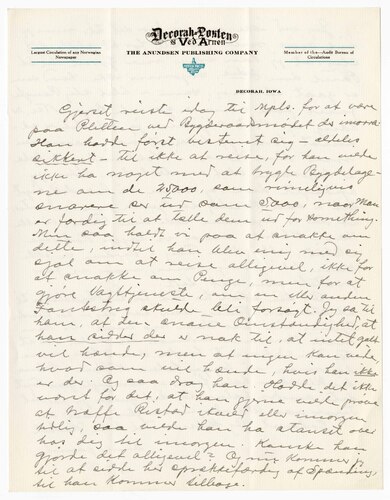 Decorah-Posten
og Ved Arnen
Largest Circulation of any Norwegian
Newspaper
THE ANUNDSEN PUBLISHING COMPANY
Member of the Audit Bureau of
Circulations
DECORAH, IOWA
Gjerset reiste idag til Mpls. for at være
paa Pletten ved Bygderaadsmødet der imorra.
Han hadde først bestemt sig
sikkert – til ikke at reise, for han vilde
ikke ha noget med at bygle Bygdelage-
ne om de 25000, som rimeligvis
snarere ser ud som 5000, naar Man
er færdig til at tælle dem ud for something.
Men saa holdt vi paa at snakke om
dette, indtil han blev enig med sig
sjøl om at reise alligevel, ikke for
at snakke om Penge, men for at
gjøre Vagttjeneste, om en eller anden
Fantestreg skulde bli forsøgt. Jeg sa til
ham, at den snare Omstændighed, at
han sidder der er nok til, at intet galt
vil hænde, men at ingen kan vide
hvad som vil hænde, hvis han ikke
er der. Og saa drog han. Hadde det ikke
vært for det, at han gjerne vilde prøve
at træffe Ristad iveien eller imorgen
tidlig, saa vilde han ha stanset over
hos dig til imorgen. Kanske han
gjorde det alligevel? Og nu kommer jeg
til at sidde her sprækkefærdig af Spænding
til han kommer tilbage.